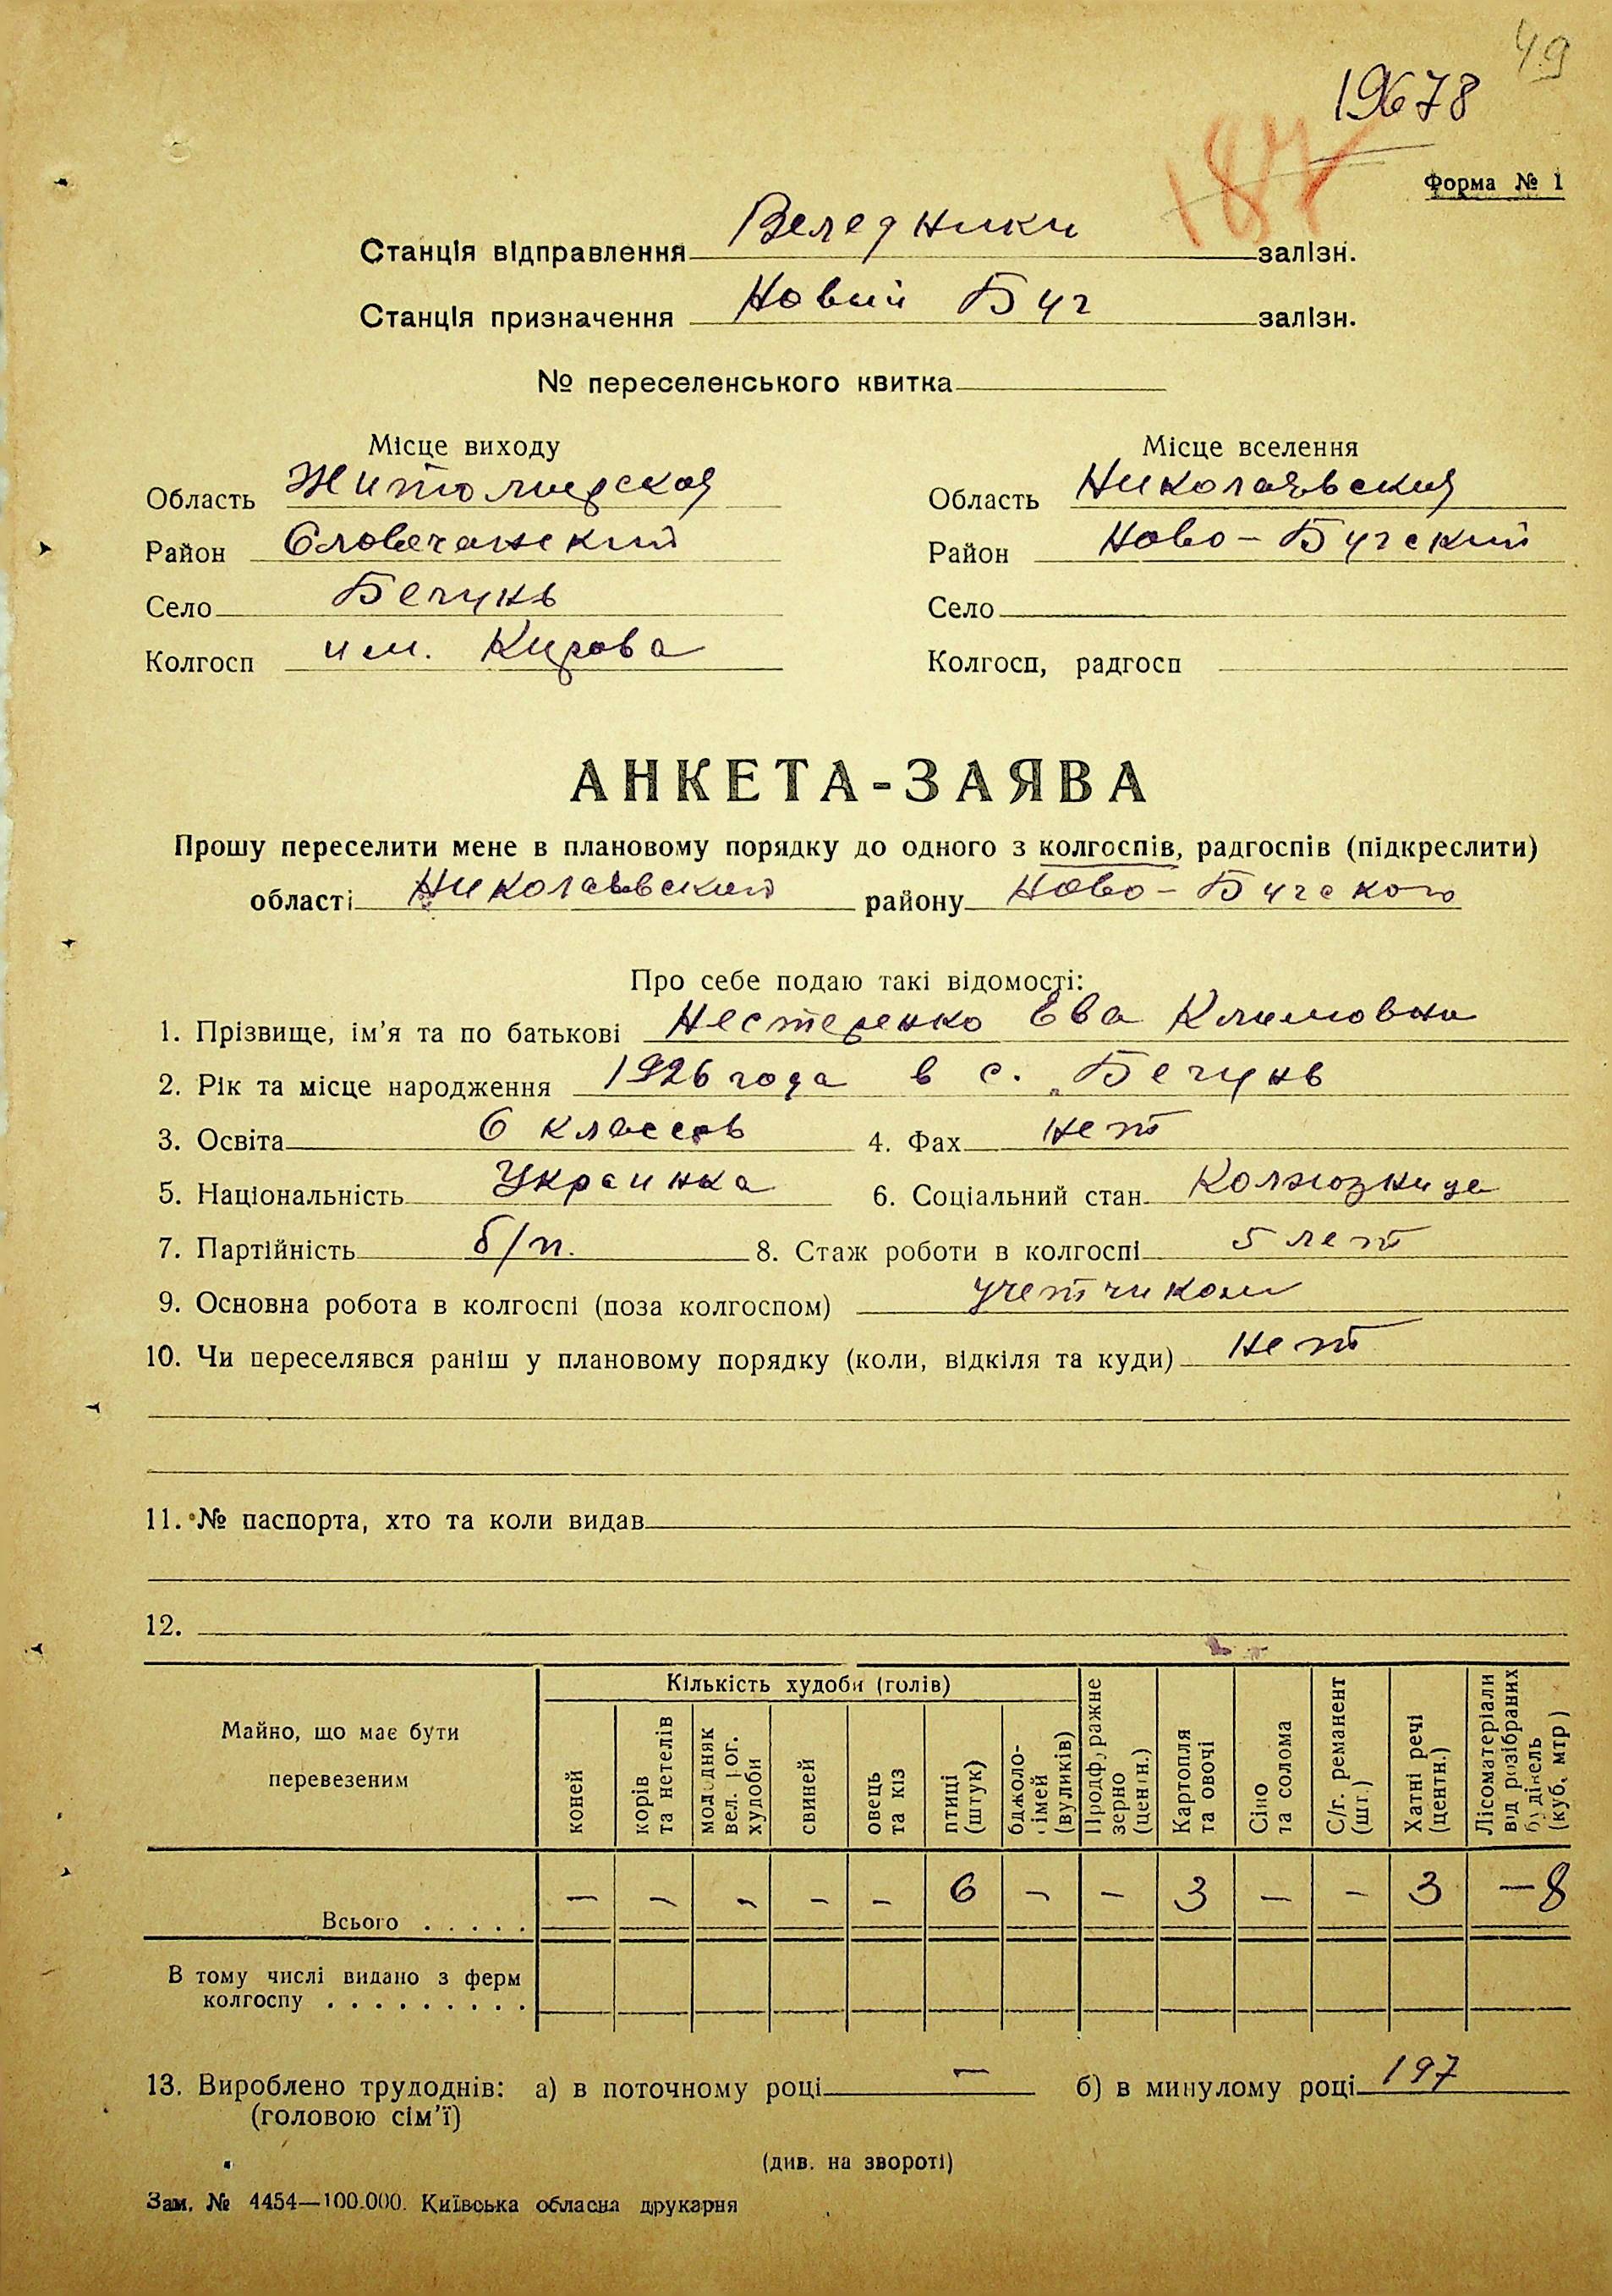 49
19678
187
Форма № 1
Станція відправлення Веледники залізн.
Станція призначення Новий Буг залізн.
№ переселенського квитка
Місце виходу Місце вселення
Область Житомирская Область Николаевская
Район Словечанский Район Ново-Бугский
Село Бегунь Село
Колгосп им. Кирова Колгосп, радгосп
АНКЕТА-ЗАЯВА
Прошу переселити мене в плановому порядку до одного з колгоспів, радгоспів (підкреслити)
області Николаевской району Ново-Бугского
Про себе подаю такі відомості:
1. Прізвище, ім'я та по батькові Нестеренко Ева Климовна
2. Рік та місце народження 1926 года в с. Бегунь
3. Освіта 6 классов 4. Фах нет
5. Національність Украинка 6. Соціальний стан Колхозница
7. Партійність б/п. 8. Стаж роботи в колгоспі 5 лет
9. Основна робота в колгоспі (поза колгоспом) учетчиком
10. Чи переселявся раніш у плановому порядку (коли, відкіля та куди) нет
11. № паспорта, хто та коли видав
12.
Майно, що має бути перевезеним
Кількість худоби (голів)
коней
корів та нетелів
молодняк вел. рог. худоби
свиней
овець та кіз
птиці (штук)
бджоло-сімей (вуликів)
Продфуражне зерно (центн.)
Картопля та овочі
Сіно та солома
С/г. реманент (шт.)
Хатні речі (центн.)
Лісоматеріали від розібраних будівель (куб. мтр)
Всього . . . . . — — — — — 6 — — 3 — — 3 — 8
В тому числі видано з ферм
колгоспу . . . . . . . . .
13. Вироблено трудоднів: а) в поточному році — б) в минулому році 197
(головою сім'ї)
(див. на звороті)
Зам. № 4454—100.000. Київська обласна друкарня